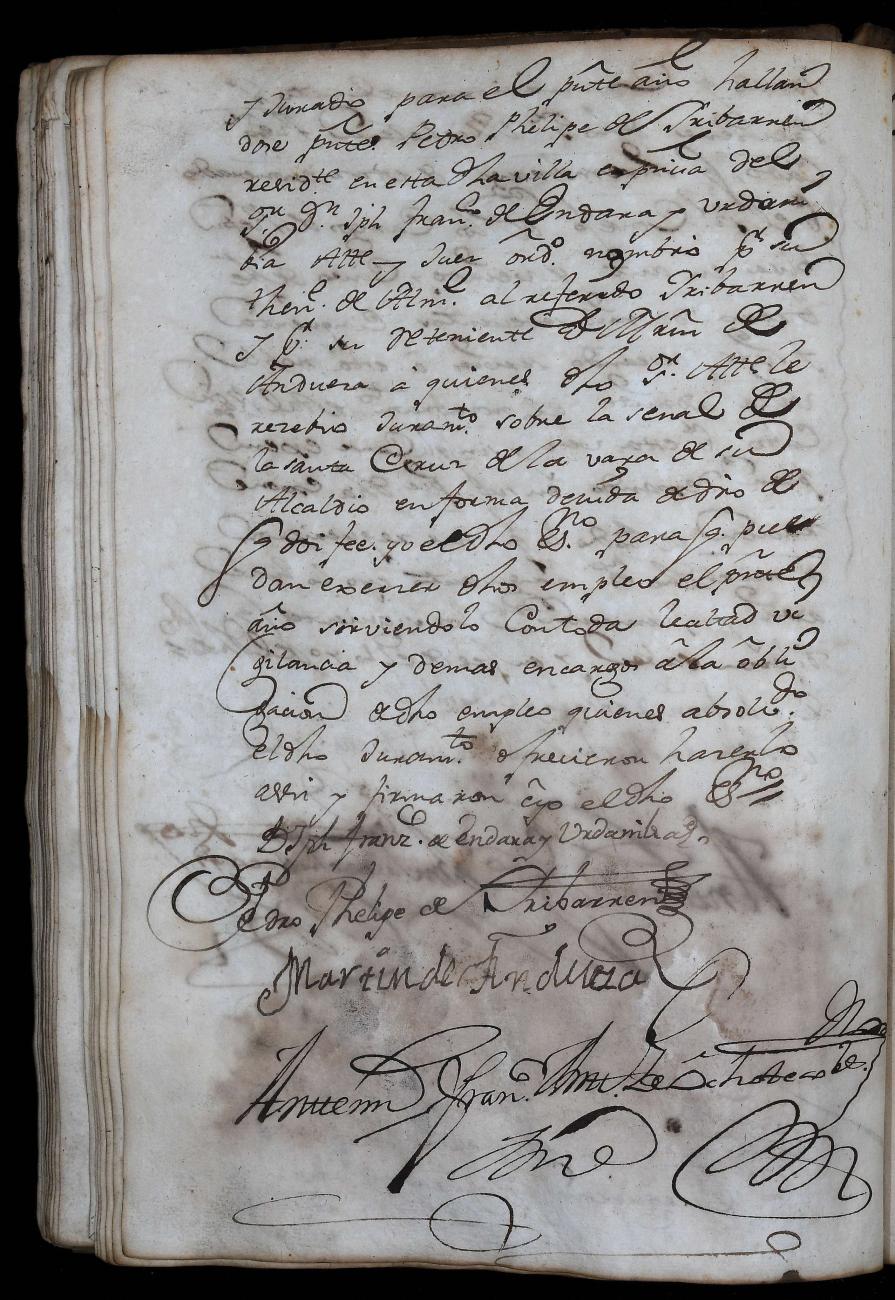 y Jurado para el pñte año hallan
dose pñtes Pedro Phelipe de Yribarren
resid.te en esta dha villa en pñcia del
S.r D.n Jph Fran.co de Endara y Urdani
bia Alle y Juez ord.o nombro p.r su
then.e de Alm.e al referido Yribarren
y p.r su deteniente a Mrñ de
Andueza a quienes dho S.r Alle le
rezebio Juram.to sobre la senal de
la santa Cruz de la vara de su
Alcaldio en forma devida de dro de
q doi fee. yo el dho Es.no para q. pue
dan exerzer dhos empleo el pñte
año sirviendolo Con toda lealtad vi
gilancia y demas encargos a la obli
gacion de dho empleo quienes absolu.do
el dho Juram.to ofrecieron hazerlo
assi y firmaron e yo el dho Es.no
D Jph Fran.co de Endara y Urdanibia
Pedro Phelipe de Yribarren
Martin de Andueza
Antemi Fran.co Ant.o de